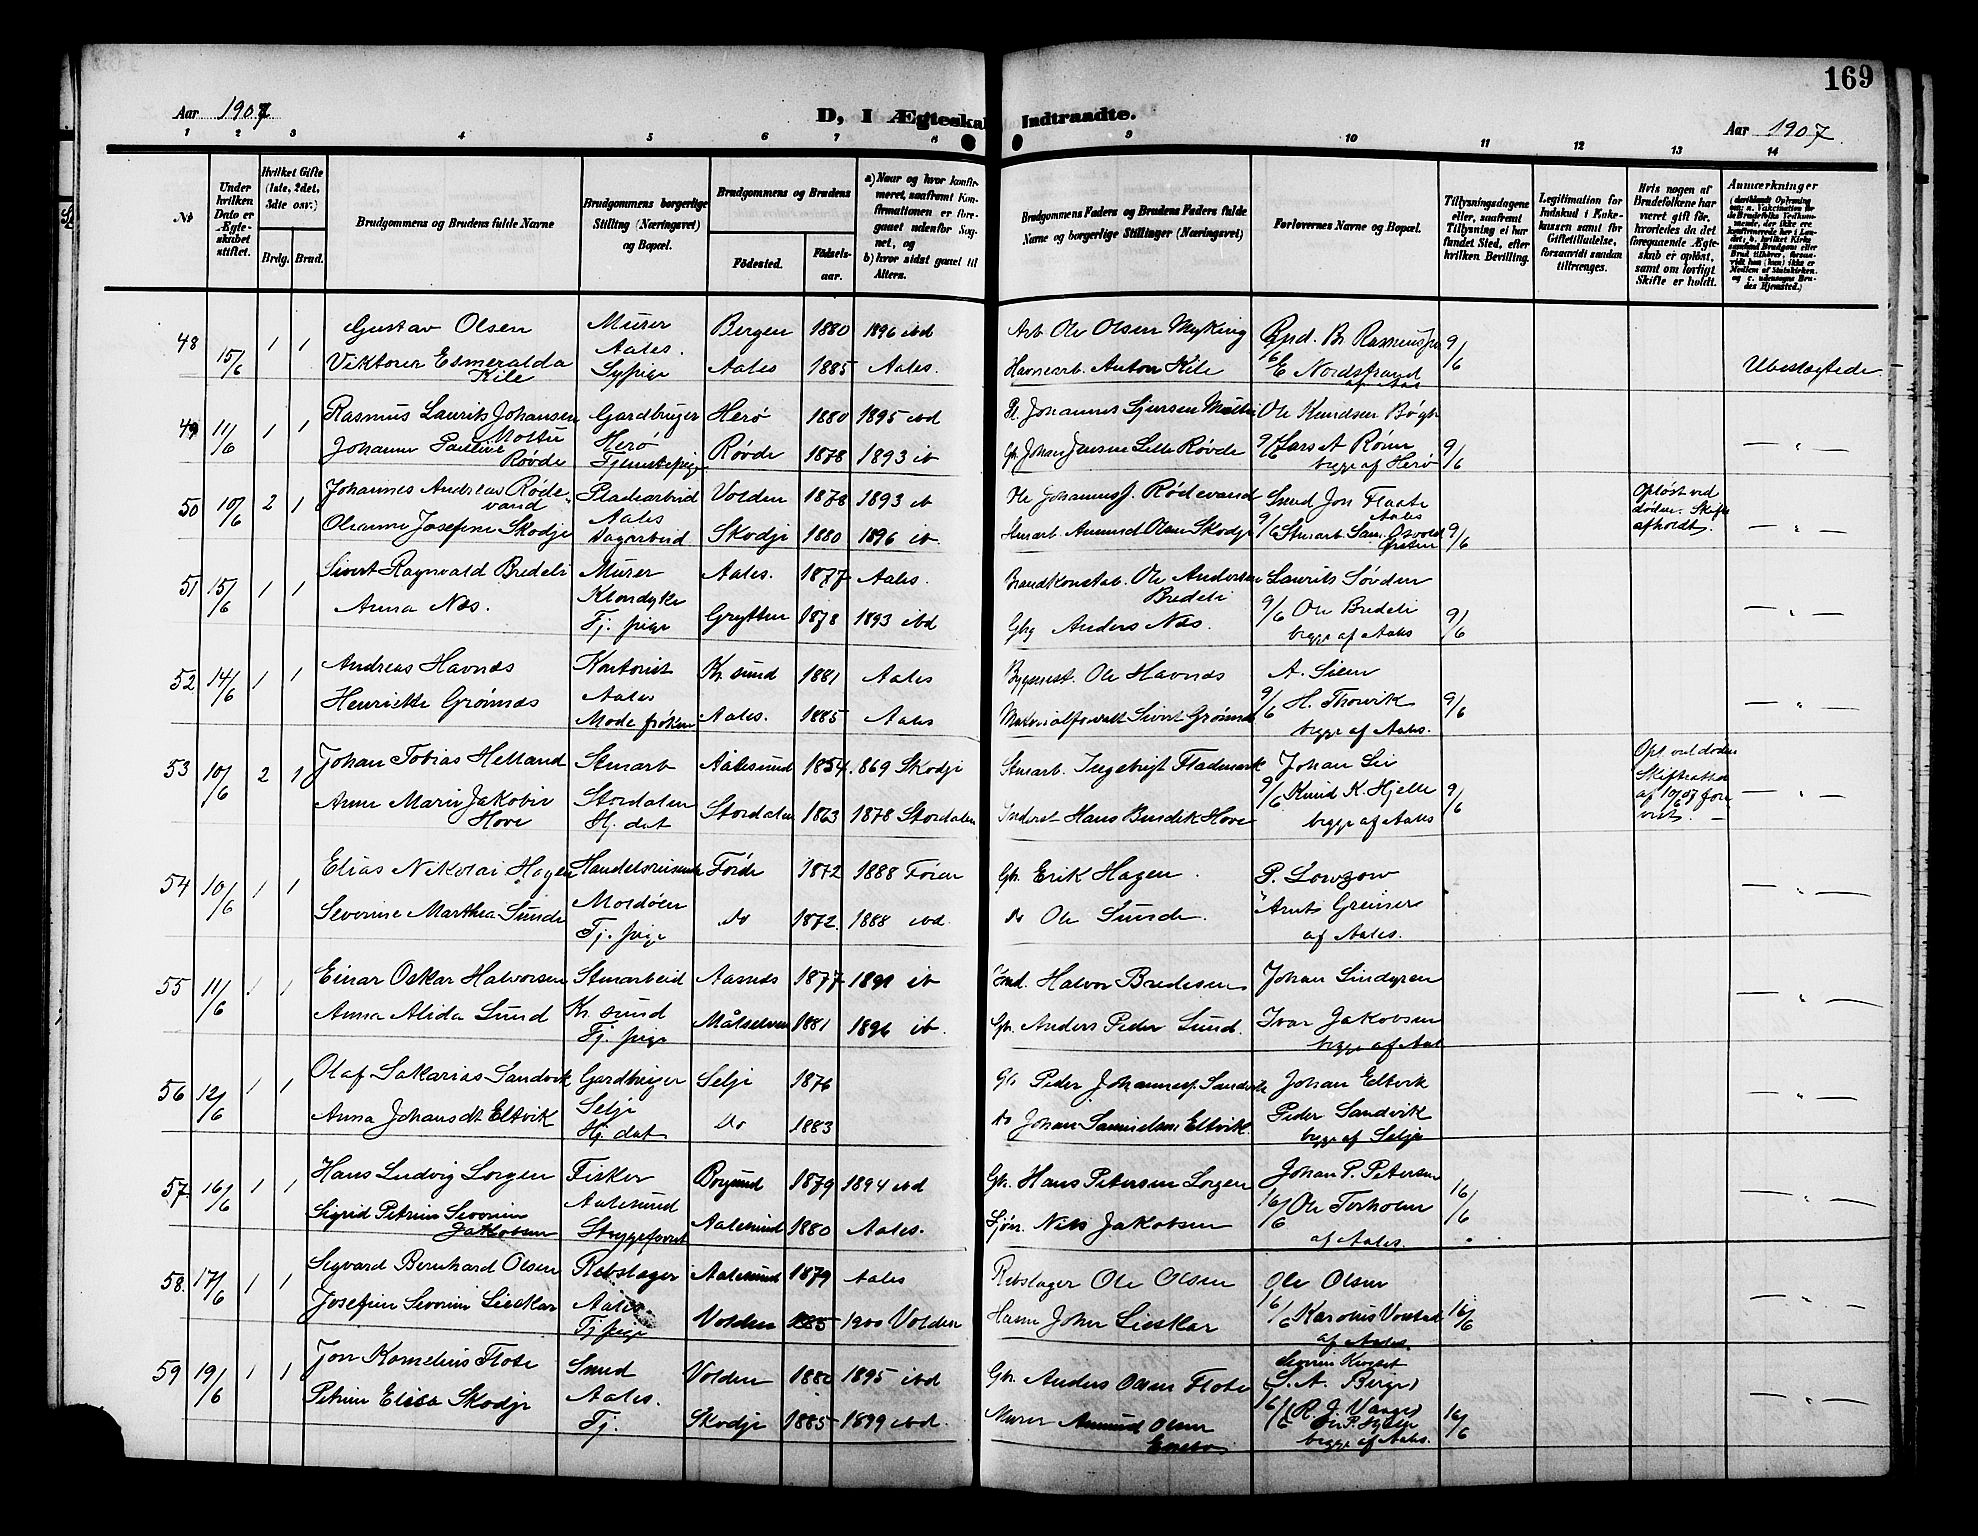 169
Aar 1907
D, I Ægteskab Indtraadte.
Aar 1907
1 2 3 4 5 6 7 8 9 10 11 12 13 14
№
Under hvilken Dato er Ægteskabet stiftet.
Hvilket Gifte (1ste, 2det, 3die osv.)
Brdg. Brud.
Brudgommens og Brudens fulde Navne
Brudgommens borgerlige Stilling (Næringsvei) og Bopæl.
Brudgommens og Brudens
Fødested.
Fødselsaar.
a) Naar og hvor konfirmeret, saafremt Konfirmationen er foregaaet udenfor Sognet, og
b) hvor sidst gaaet til Alters.
Brudgommens Faders og Brudens Faders fulde Navne og borgerlige Stillinger (Næringsvei)
Forlovernes Navne og Bopæl.
Tillysningsdagene eller, saafremt Tillysning ei har fundet Sted, efter hvilken Bevilling.
Legitimation for Indskud i Enkekassen samt for Giftetilladelse, forsaavidt saadan tiltrænges.
Hvis nogen af Brudefolkene har været gift før, hvorledes da det foregaaende Ægteskab er opløst, samt om lovligt Skifte er holdt.
Anmærkninger
48 15/6 1 1 Gustav Olsen Murer Bergen 1880 1896 ibd Arb Ole Olsen Myking 9/6
Aales.
Viktoria Esmeralda Kile Sypige Aales 1885 Aales. Havnearb. Anton Kile E Nordstrand af Aales Ubeslægtede
49 11/6 1 1 Rasmus Laurits Johansen Moltu Gardbruger Herø 1880 1895 ibd Ole Knudsen Bøgh
Herø
Johanne Pauline Røvde Tjenestepige Røvde 1878 1893 ib Lille Røvde 9/6 begge af Herø 9/6 — " —
50 10/6 2 1 Johannes Andreas Rødevand Pladearbeid Volden 1878 1893 ib Ole Johannes J. Rødevand Smed Jon Flaate Aales Opløst ved døden. Skifte afholdt.
Aales
Olianne Josefine Skodje Dagarbeid Skodje 1880 1896 ib Stenarb. Amund Olsen Skodje 9/6 9/6 — " —
51 15/6 1 1 Sivert Ragnvald Bredeli Murer Aales. 1877 Aales. Brandkonstab. Ole Andersen Bredeli Laurits Søvden
Klondyke
Anna Næs. Tj. pige Grytten 1878 1893 ibd Gbg Anders Næs. 9/6 Ole Bredeli begge af Aales 9/6 — " —
52 14/6 1 1 Andreas Havnæs Kontorist Kr. sund 1881 Aales Bygmest. Ole Havnæs
Aales
Henriette Grønnæs Mode frøken Aales. 1885 Aales Materialforvalt Sivert Grønnæs 9/6 H. Thorvik begge af Aales. 9/6 — " —
53 10/6 2 1 Johan Tobias Helland Stenarb Aalesund 1854 1869 Skodje Stenarb. Ingebrigt Flademark Johan Liv Opl. ved døden Skifteattest af 10/6 07 forevist.
Stordalen
Anne Marie Jakobine Hove Hj. dat Stordalen 1863 1878 Stordalen Inderst Hans Bendik Hove 9/6 Knud K. Hjelle begge af Aales 9/6 — " —
54 10/6 1 1 Elias Nikolai Hagen Handelsreisende Førde 1872 1888 Førde Gbr. Erik Hagen. P. Lowzow
Moldøen
Severine Marthea Sunde Tj. pige Do 1872. 1888 ibd. Do Ole Sunde. af Aales. — " —
55 11/6 1 1 Einar Oskar Halvorsen Stenarbeid Aasnæs 1877 1891 ib Halvor Bredesen Johan Lindgren
Kr. sund
Anna Alida Lund Tj. pige Målselven 1881 1896 ib Gbr. Anders Peder Lund. Ivar Jakobsen begge af Aal — " —
56 12/6 1 1 Olaf Sakarias Sandvik Gardbruger Selje 1876 Gbr Peder Johannes. Sandvik Johan Eltvik
Selje
Anna Johansdt Eltvik Hj. dat Do 1883 Do Johan Samuelsen Eltvik. Peder Sandvik begge af Selje — " —
57 16/6 1 1 Hans Ludvig Sorgen Fisker Borgund 1879 1894 ibd Gbr. Hans Petersen Sorgen Johan P. Petersen
Aalesund
Sigrid Petrine Severine Jakobsen Strygefovret Aalesund 1880 Aales. Sjøm. Nils Jakobsen 16/6 Ole Torholm af Aales. 16/6 — " —
58. 17/6 1 1 Sigvard Bernhard Olsen Rebslager Aalesund 1879 Aales Rebslager Ole Olsen Ole Olsen
Aales.
Josefine Severine Lieskar Tj pige Volden 1885 1900 Volden John Lieskar 16/6 af Aales. 16/6 — " —
59 19/6 1 1 Jon Kornelius Flote Smed Volden 1880 1895 ibd Gbr. Anders Olsen Flote
Aales.
Petrine Elisa Skodje Tj. Skodje 1885 1899 ibd. Murer Amund Olsen 16/6 begge af Aales. 16/6 — " —